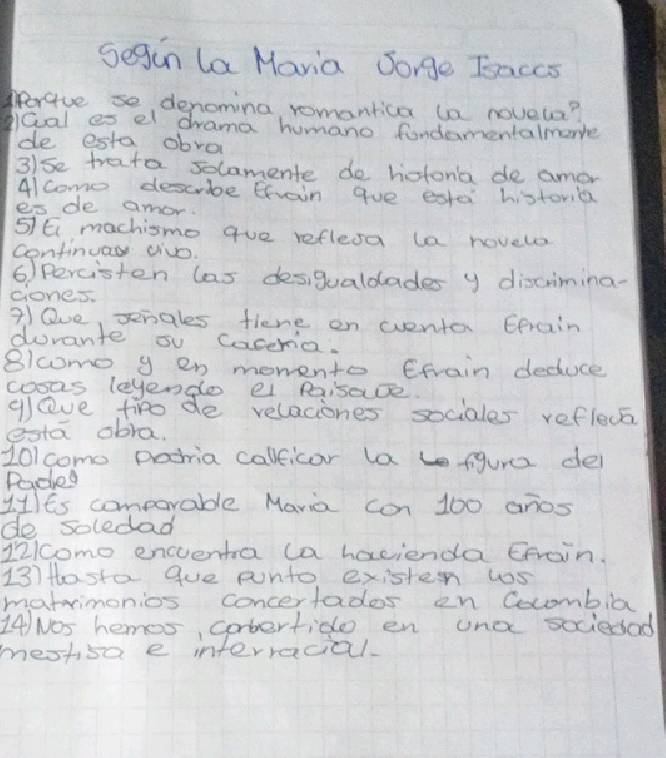 Según La Maria Jorge Isaccs
1)Porque se denomina romantica la novela?
2)Cual es el drama humano fundamentalmente
de esta obra
3)se trata solamente de historia de amor
4)como describe Efrain que esta historia
es de amor.
5)El machismo que reflesa la novela
continuas vivo.
6)Percisten las desigualdades y discrimina-
ciones.
7)Que señales tiene en cuenta Efrain
durante su caceria.
8)como y en momento Efrain deduce
cosas leyendo el Paisaje.
9)Que tipo de relaciones sociales refleja
esta obra.
10)como podria calificar la figura del
Padre
11)Es comparable Maria con 100 años
de soledad
12)como encuentra la hacienda Efrain.
13)Hasta que punto existen los
matrimonios concertados en Colombia
14)Nos hemos, convertido en una sociedad
mestisa e interracial.